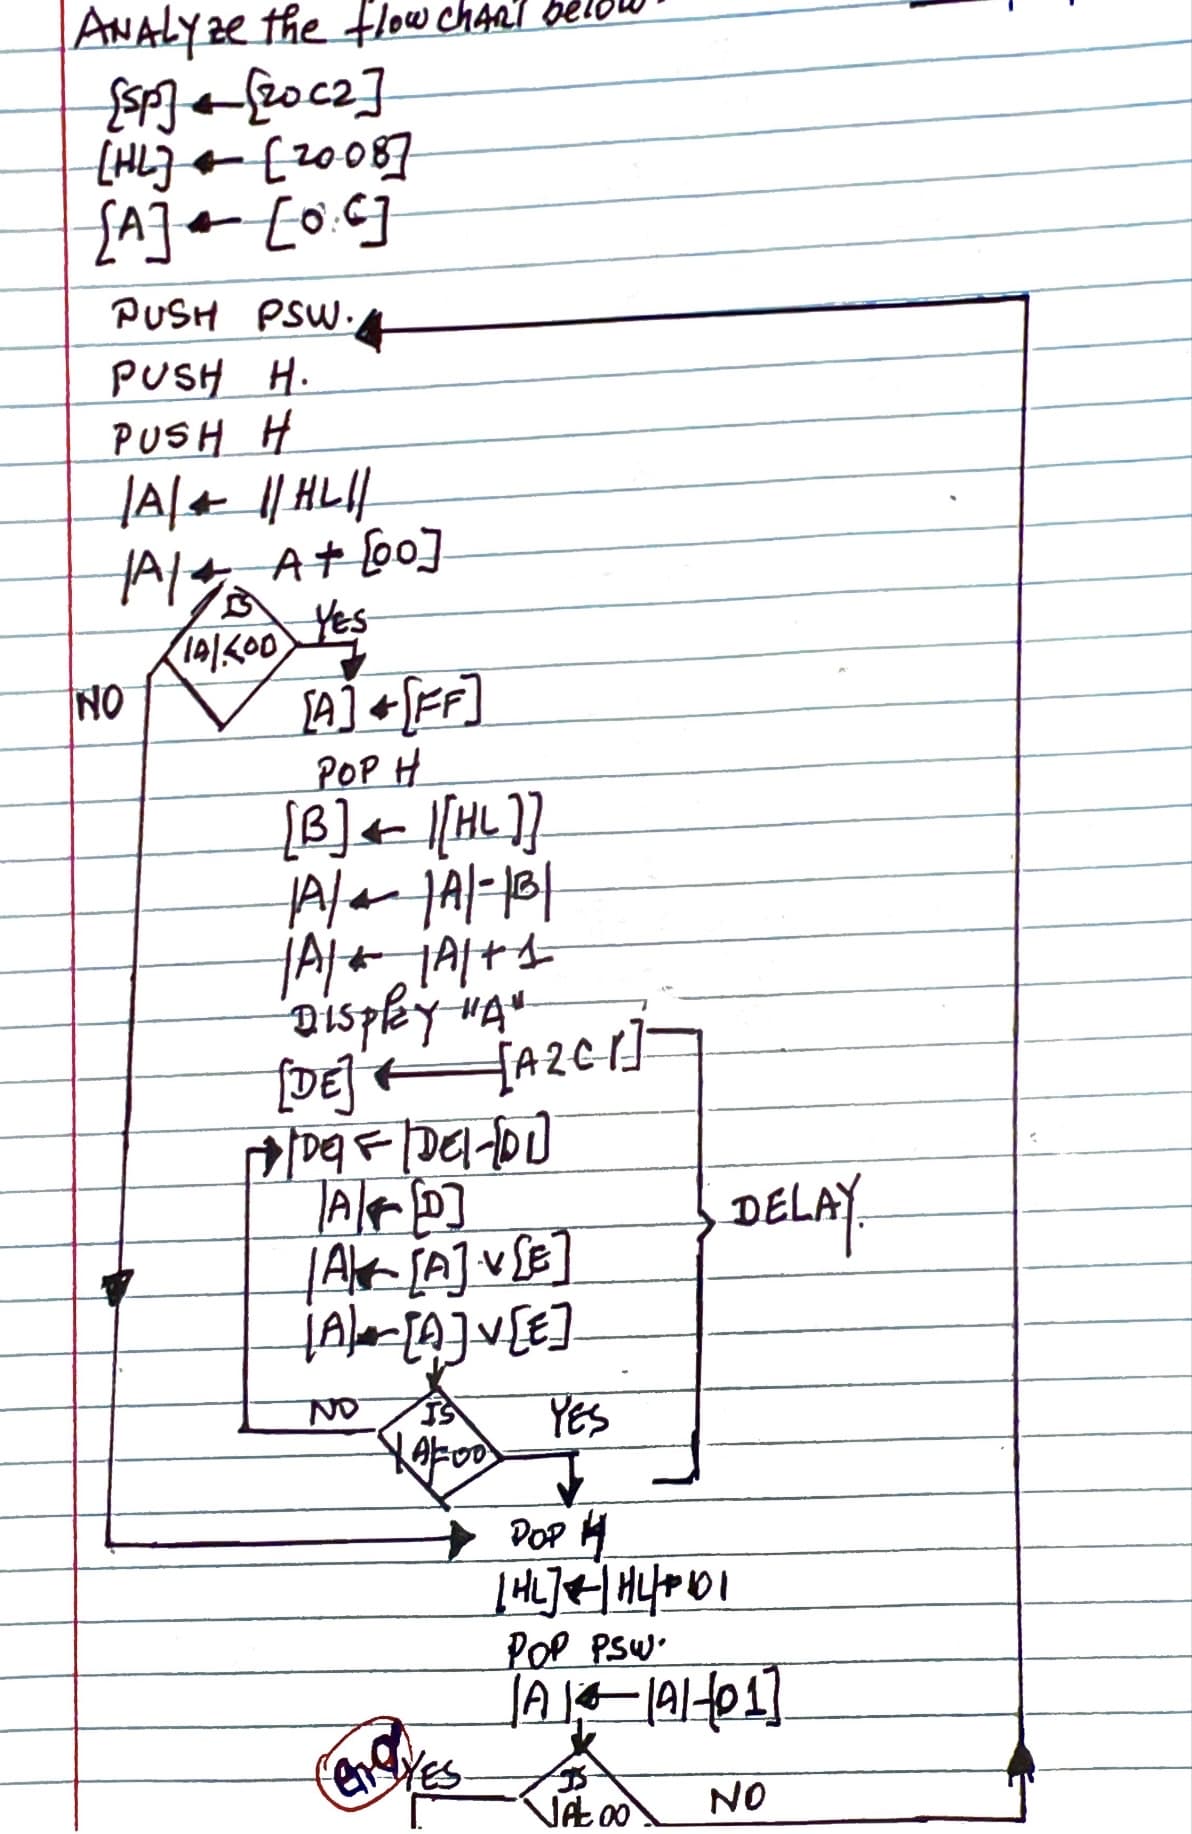 ANALYze the flowchART below.
[SP] ← [20C2]
[HL] ← [2008]
[A] ← [0.C]
PUSH PSW.
PUSH H.
PUSH H
|A| ← ||HL||
|A| ← A + [00]
IS |A|<00
YES
NO
[A] ← [FF]
POP H
[B] ← |[HL]]
|A| ← |A|-|B|
|A| ← |A|+1
DISPlAY "A"
[DE] ← [A2C1]
|DE| ← |DE|-[01]
|A| ← [D]
|A| ← [A] v [E]
|A| ← [A] v [E]
DELAY.
NO
IS |A|=00
YES
POP H
[HL] ← |HL|+01
POP PSW.
|A| ← |A|-[01]
end
YES
IS |A|=00
NO